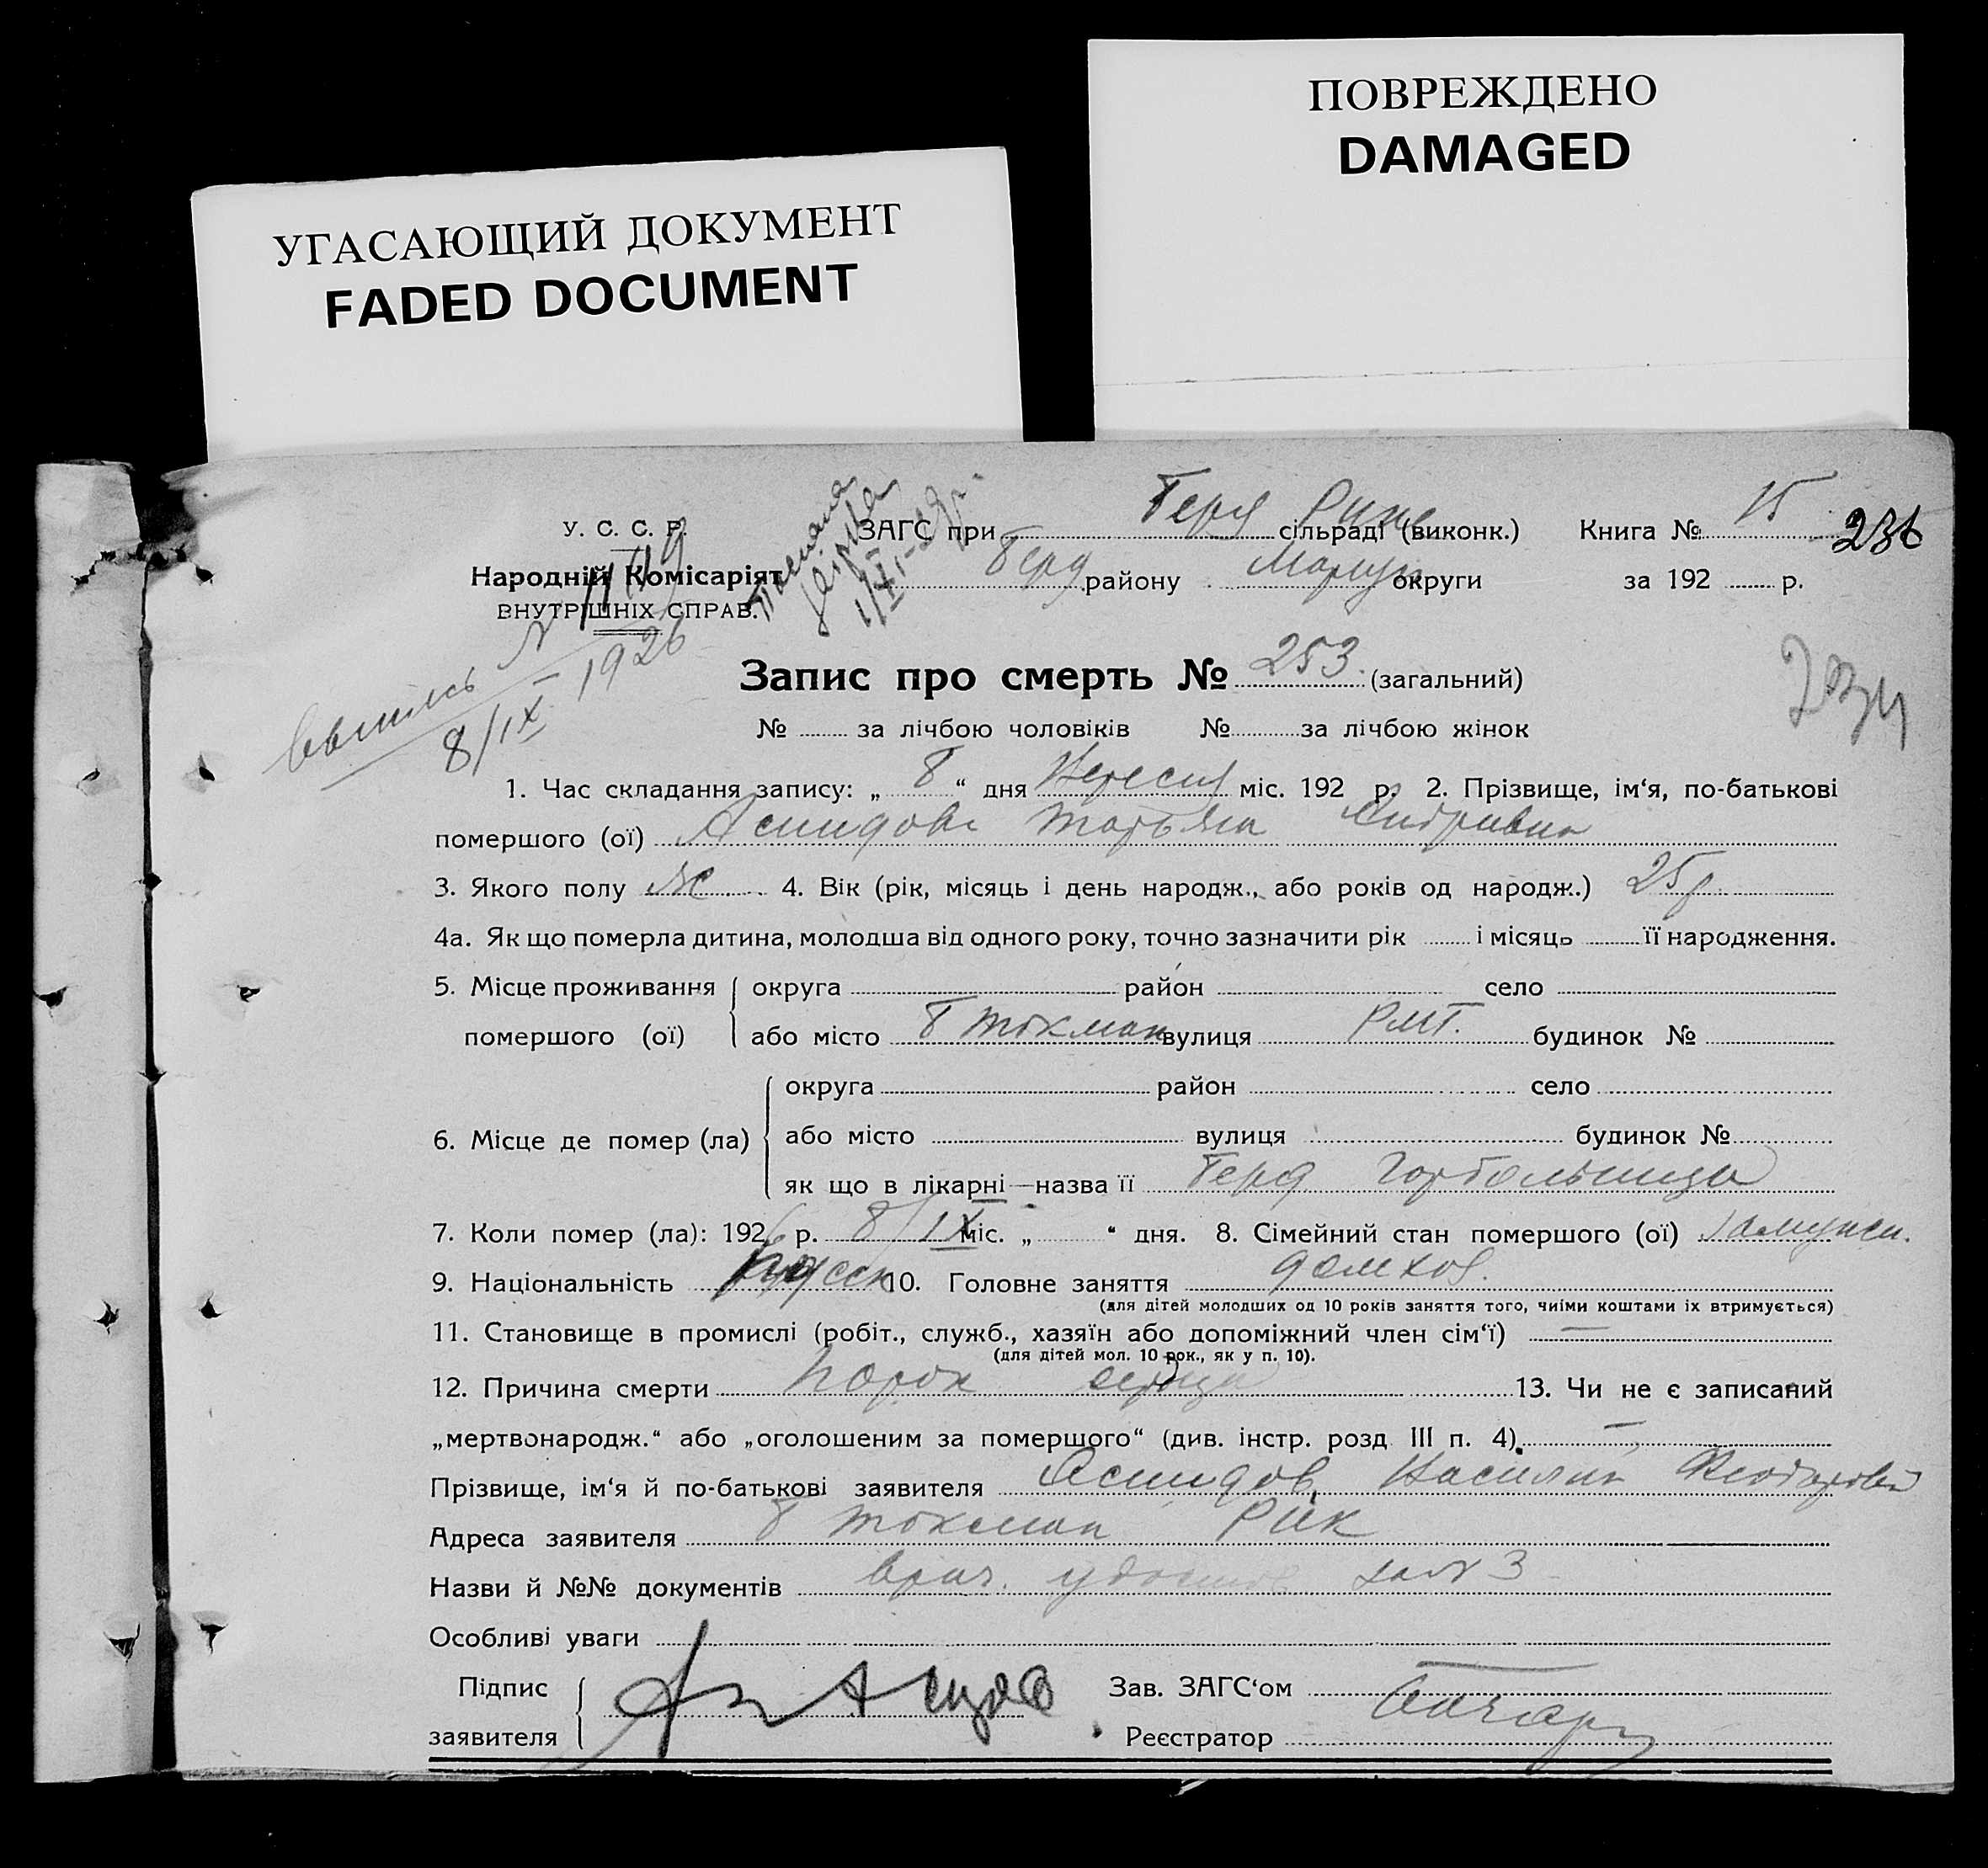 УГАСАЮЩИЙ ДОКУМЕНТ
FADED DOCUMENT
ПОВРЕЖДЕНО
DAMAGED
У. С. С. Р.
Народній Комісаріят
ВНУТРІШНІХ СПРАВ.
ЗАГС при сільраді (виконк.) Книга № 15
району округи за 192 р.
8/IX 1926
Запис про смерть № 253 (загальний)
№ за лічбою чоловіків № за лічбою жінок
1. Час складання запису: „ 8 “ дня Вересня міс. 192 р. 2. Прізвище, ім‘я, по-батькові
помершого (ої)
3. Якого полу ж 4. Вік (рік, місяць і день народж., або років од народж.) 25 р.
4а. Як що померла дитина, молодша від одного року, точно зазначити рік і місяць її народження.
5. Місце проживання округа район село
помершого (ої) або місто Б Токмак вулиця будинок №
округа район село
6. Місце де помер (ла) або місто вулиця будинок №
як що в лікарні—назва її Берд горбольница
7. Коли помер (ла): 1926 р. 8/IX міс. „ “ дня. 8. Сімейний стан помершого (ої)
9. Національність 10. Головне заняття домхоз.
(для дітей молодших од 10 років заняття того, чиїми коштами їх втримується)
11. Становище в промислі (робіт., служб., хазяїн або допоміжний член сім‘ї) —
(для дітей мол. 10 рок., як у п. 10).
12. Причина смерти порок сердца 13. Чи не є записаний
„мертвонародж.“ або „оголошеним за помершого“ (див. інстр. розд III п. 4). —
Прізвище, ім‘я й по-батькові заявителя
Адреса заявителя Б Токмак РИК
Назви й №№ документів врач. за № 3
Особливі уваги
Підпис Зав. ЗАГС‘ом
заявителя Реєстратор